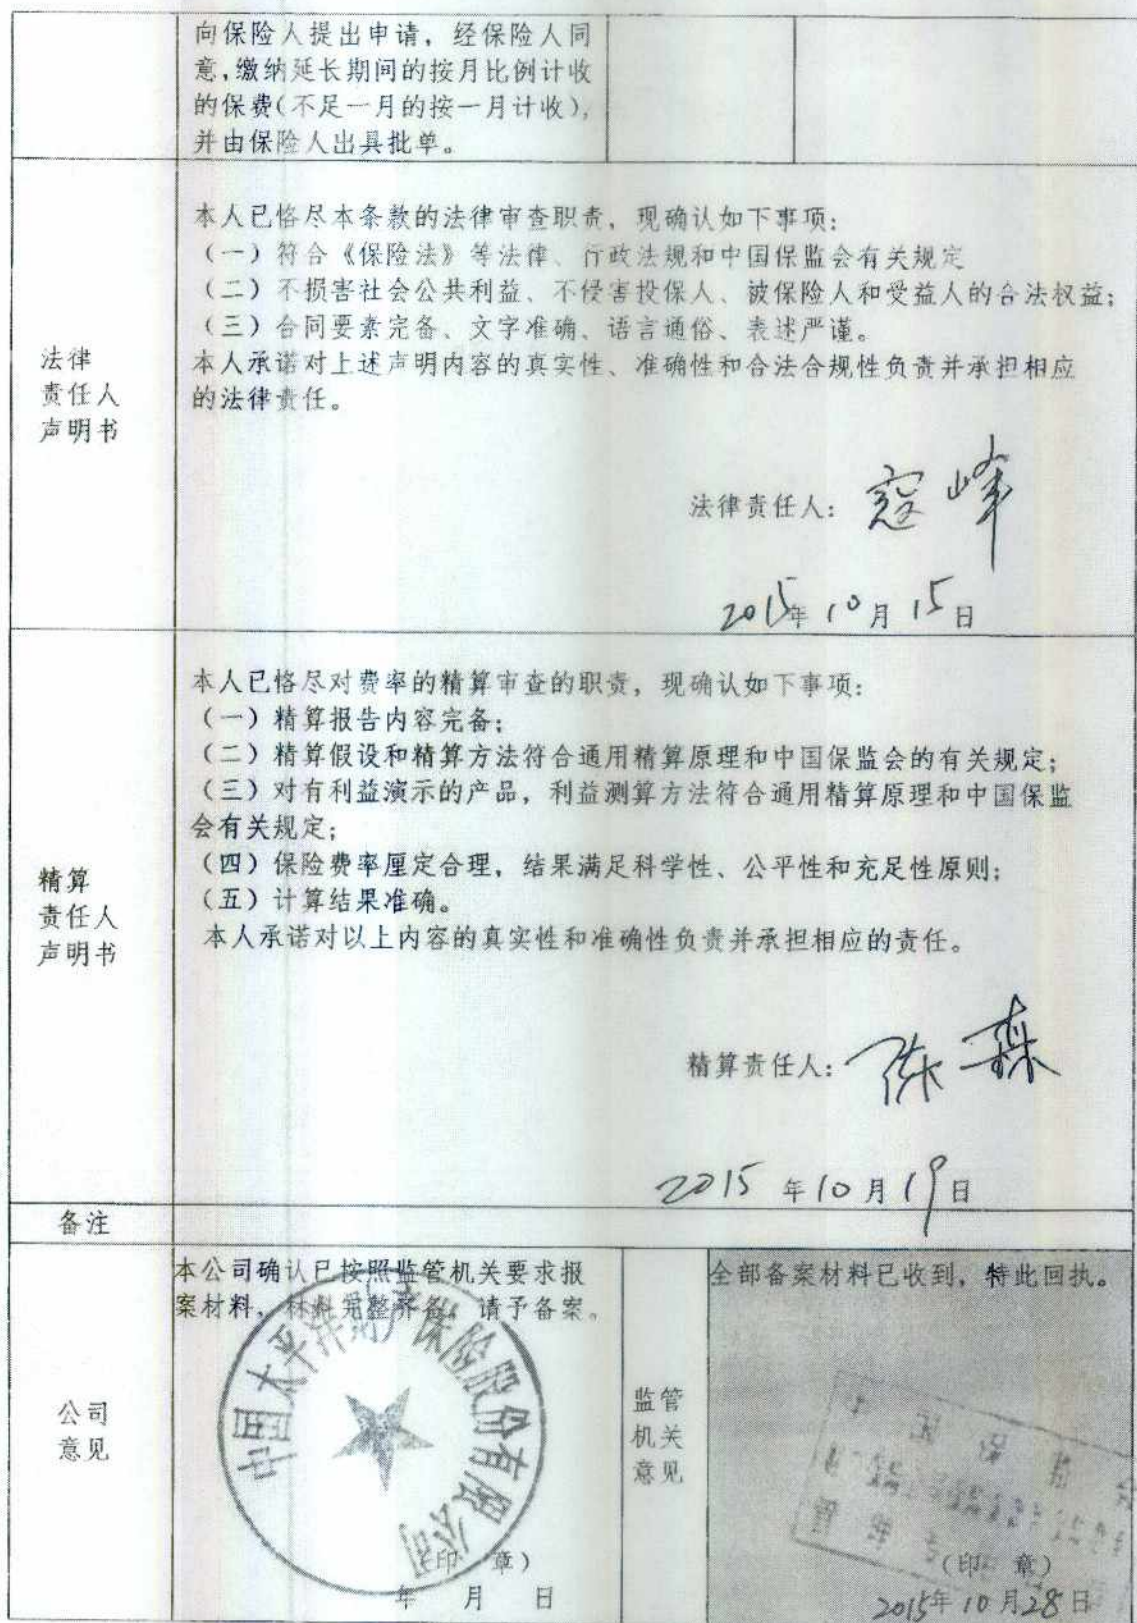 向保险人提出申请，经保险人同
意，缴纳延长期间的按月比例计收
的保费（不足一月的按一月计收），
并由保险人出具批单。
法律
责任人
声明书
本人已恪尽本条款的法律审查职责，现确认如下事项：
（一）符合《保险法》等法律、行政法规和中国保监会有关规定
（二）不损害社会公共利益、不侵害投保人、被保险人和受益人的合法权益；
（三）合同要素完备、文字准确、语言通俗、表述严谨。
本人承诺对上述声明内容的真实性、准确性和合法合规性负责并承担相应
的法律责任。
法律责任人：寇峰
2015年10月15日
精算
责任人
声明书
本人已恪尽对费率的精算审查的职责，现确认如下事项：
（一）精算报告内容完备；
（二）精算假设和精算方法符合通用精算原理和中国保监会的有关规定；
（三）对有利益演示的产品，利益测算方法符合通用精算原理和中国保监
会有关规定；
（四）保险费率厘定合理，结果满足科学性、公平性和充足性原则；
（五）计算结果准确。
本人承诺对以上内容的真实性和准确性负责并承担相应的责任。
精算责任人：陈森
2015年10月19日
备注
公司
意见
本公司确认已按照监管机关要求报
案材料，材料完整齐备，请予备案。
中国太平洋财产保险股份有限公司
（印 章）
年 月 日
监管
机关
意见
全部备案材料已收到，特此回执。
（印 章）
2015年10月28日